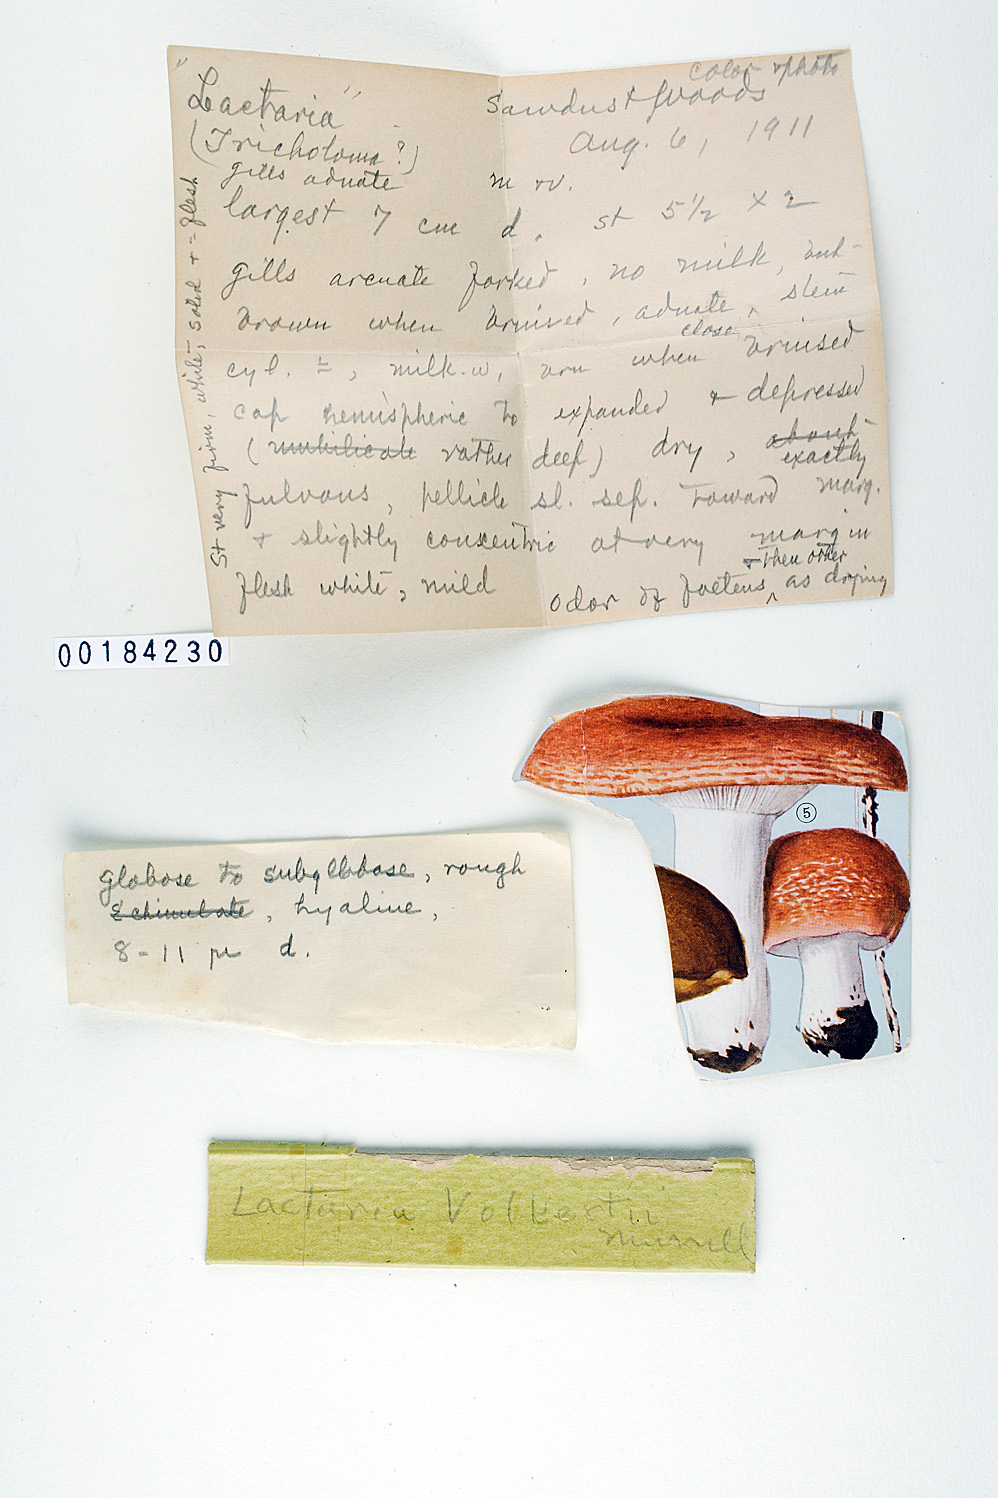 color photo
"Lactaria" Sawdust & Woods
(Tricholoma?) Aug. 6, 1911
gills adnate m w.
largest 7 cm d. st 5½ × 2
gills arcuate forked, no milk, but
brown when bruised, adnate, stem
close
cyl. =, milk-w, brn when bruised
cap hemispheric to expanded & depressed
(umbilicate rather deep) dry, about
exactly
fulvous, pellicle sl. sep. toward marg.
& slightly concentric at very margin
flesh white, mild odor of foetens ^ as drying
& then other
St very firm, white, solid & = flesh
00184230
5
globose to subglobose, rough
Echinulate, hyaline,
8-11 µ d.
Lactaria Volkertii
Murrill